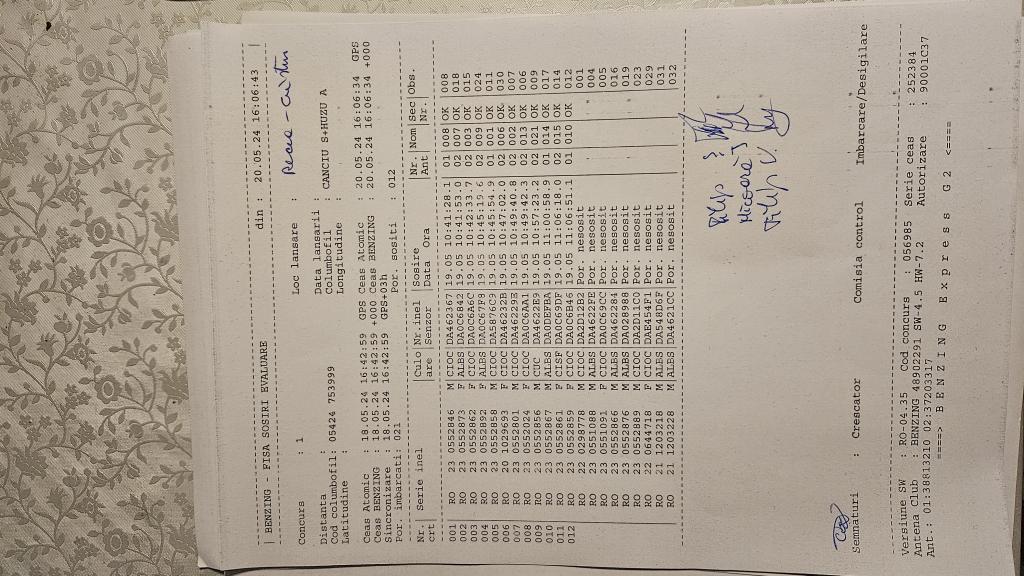 din : 20.05.24 16:06:43
BENZING - FISA SOSIRI EVALUARE
Concurs : 1 Loc lansare :
Distanta : Data lansarii :
Cod columbofil: 05424 753999 Columbofil : CANCIU S+HUZU A
Latitudine : Longitudine :
Ceas Atomic : 18.05.24 16:42:59 GPS Ceas Atomic : 20.05.24 16:06:34 GPS
Ceas BENZING : 18.05.24 16:42:59 +000 Ceas BENZING : 20.05.24 16:06:34 +000
Sincronizare : 18.05.24 16:42:59 GPS+03h
Por. imbarcati: 021 Por. sositi : 012
Nr. | Serie inel |Culo|Nr.inel |Sosire |Nr. |Nom|Sec|Obs.
crt |are |Senzor |Data Ora |Ant |Nr.
001 RO 23 0552846 M CIOC DA462367 19.05 10:41:28.1 01 008 OK 008
002 RO 23 0552873 F ALBS DA0C6842 19.05 10:41:53.0 02 007 OK 018
003 RO 23 0552862 F CIOC DA0C6A6C 19.05 10:42:33.7 02 003 OK 015
004 RO 23 0552892 F ALBS DA0C67F8 19.05 10:45:19.6 02 009 OK 024
005 RO 23 0552858 M CIOC DA5876C9 19.05 10:45:54.9 01 001 OK 011
006 RO 20 1026693 F CIOC DA46232B 19.05 10:47:02.0 02 006 OK 030
007 RO 23 0552801 M CIOC DA462293 19.05 10:49:40.8 02 002 OK 007
008 RO 23 0552024 F CIOC DA0C6AA1 19.05 10:49:42.3 02 013 OK 006
009 RO 23 0552856 M CUC DA4622E9 19.05 10:57:23.2 02 021 OK 009
010 RO 23 0552867 M ALBS DA0DEFBA 19.05 11:00:58.9 01 014 OK 017
011 RO 23 0552861 F CISF DA0C69DF 19.05 11:06:18.0 02 015 OK 014
012 RO 23 0552859 F CIOC DA0C6B46 19.05 11:06:51.1 01 010 OK 012
RO 22 0298778 M CIOC DA2D12B2 Por. nesosit 001
RO 23 0551088 M ALBS DA4622FE Por. nesosit 004
RO 23 0551091 F CIOC DA0C69CC Por. nesosit 005
RO 23 0552866 M ALBS DA462284 Por. nesosit 016
RO 23 0552876 M ALBS DA028988 Por. nesosit 019
RO 23 0552889 M CIOC DA2D11C0 Por. nesosit 023
RO 22 0644718 F CIOC DAE45AF1 Por. nesosit 029
RO 21 1203218 M ALBS DA548D6F Por. nesosit 031
RO 21 1203228 M ALBS DA4621CC Por. nesosit 032
Semnaturi : Crescator Comisia control Imbarcare/Desigilare
Versiune SW : RO-04.35 Cod concurs : 056985 Serie ceas : 252384
Antena Club : BENZING 48902291 SW-4.5 HW-7.2 Autorizare : 9001C37
Ant.: 01:38813210 02:37203317
====> B E N Z I N G E x p r e s s G 2 <====